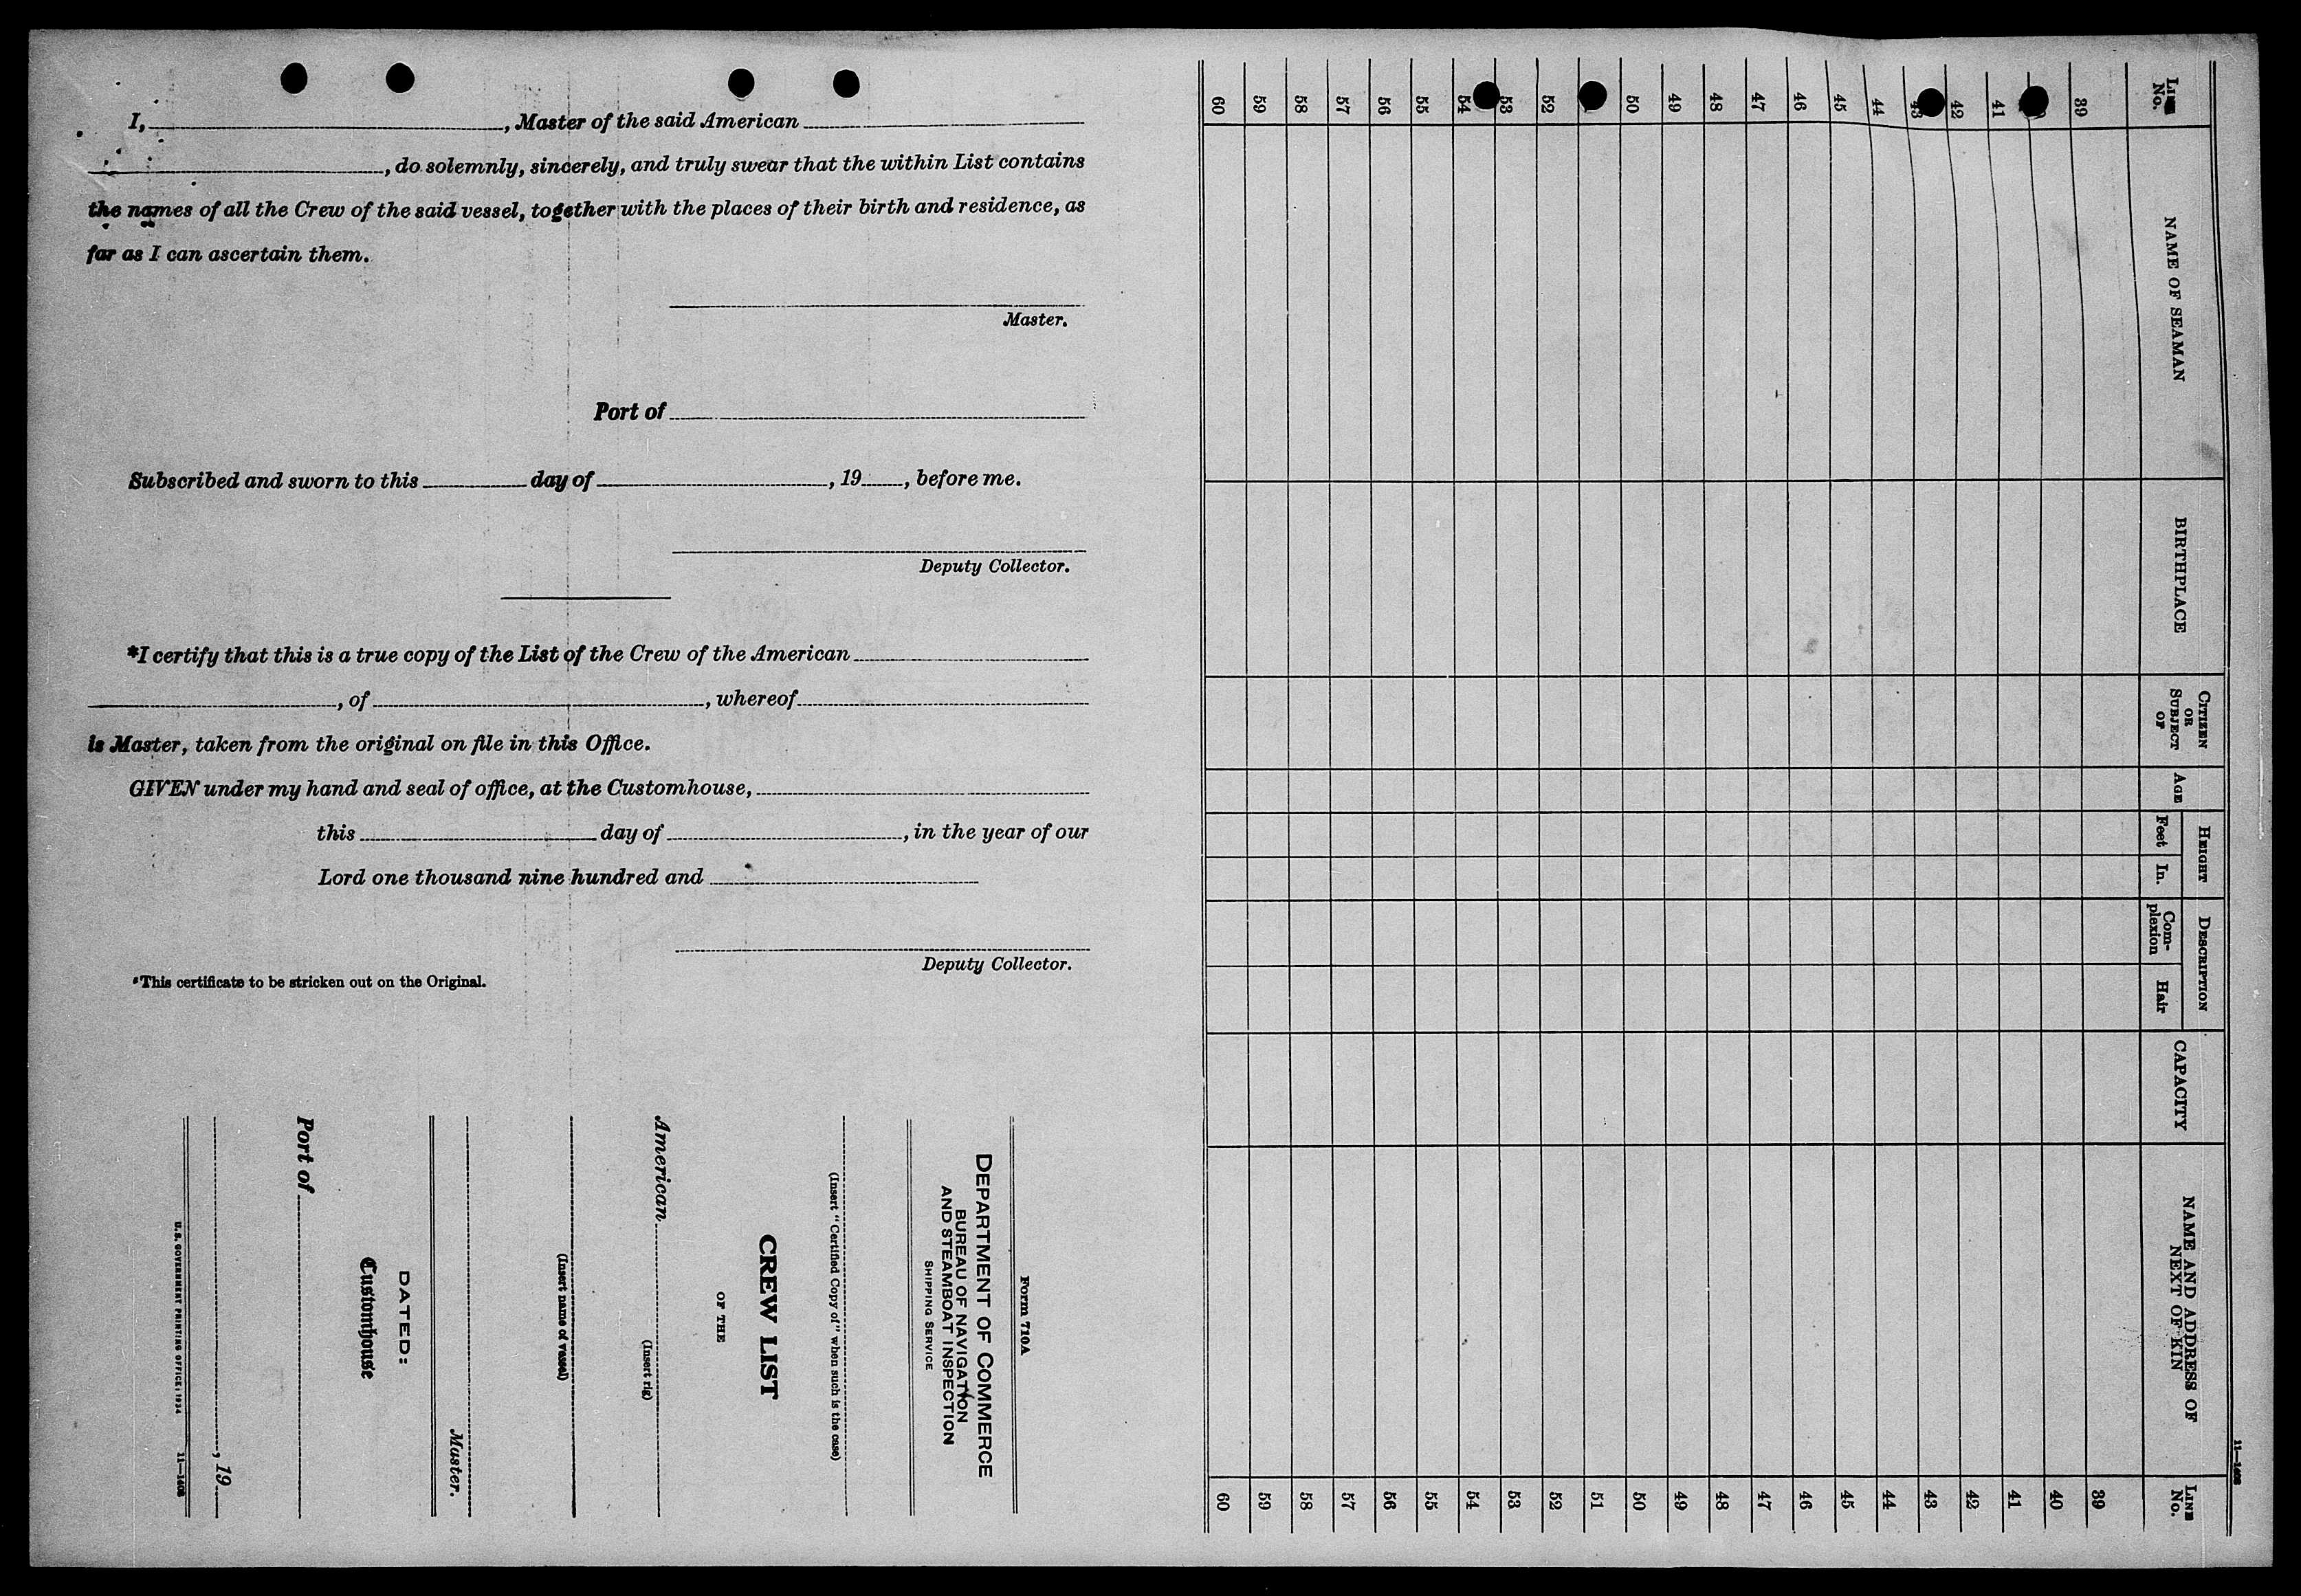 I, , Master of the said American
, do solemnly, sincerely, and truly swear that the within List contains
the names of all the Crew of the said vessel, together with the places of their birth and residence, as
far as I can ascertain them.
Master.
Port of
Subscribed and sworn to this day of , 19 , before me.
Deputy Collector.
*I certify that this is a true copy of the List of the Crew of the American
, of , whereof
is Master, taken from the original on file in this Office.
GIVEN under my hand and seal of office, at the Customhouse,
this day of , in the year of our
Lord one thousand nine hundred and
Deputy Collector.
*This certificate to be stricken out on the Original.
Form 710A
DEPARTMENT OF COMMERCE
BUREAU OF NAVIGATION
AND STEAMBOAT INSPECTION
SHIPPING SERVICE
(Insert "Certified Copy of" when such is the case)
CREW LIST
OF THE
American
(Insert rig)
(Insert name of vessel)
Master.
DATED:
Customhouse
Port of
, 19
U.S. GOVERNMENT PRINTING OFFICE: 1934 11—1408
11—1408
LINE No.
NAME OF SEAMAN
BIRTHPLACE
CITIZEN OR SUBJECT OF
AGE
HEIGHT
Feet
In.
DESCRIPTION
Complexion
Hair
CAPACITY
NAME AND ADDRESS OF NEXT OF KIN
LINE No.
39 39
40
41 41
42 42
43 43
44 44
45 45
46 46
47 47
48 48
49 49
50 50
51
52 52
53 53
54 54
55 55
56 56
57 57
58 58
59 59
60 60